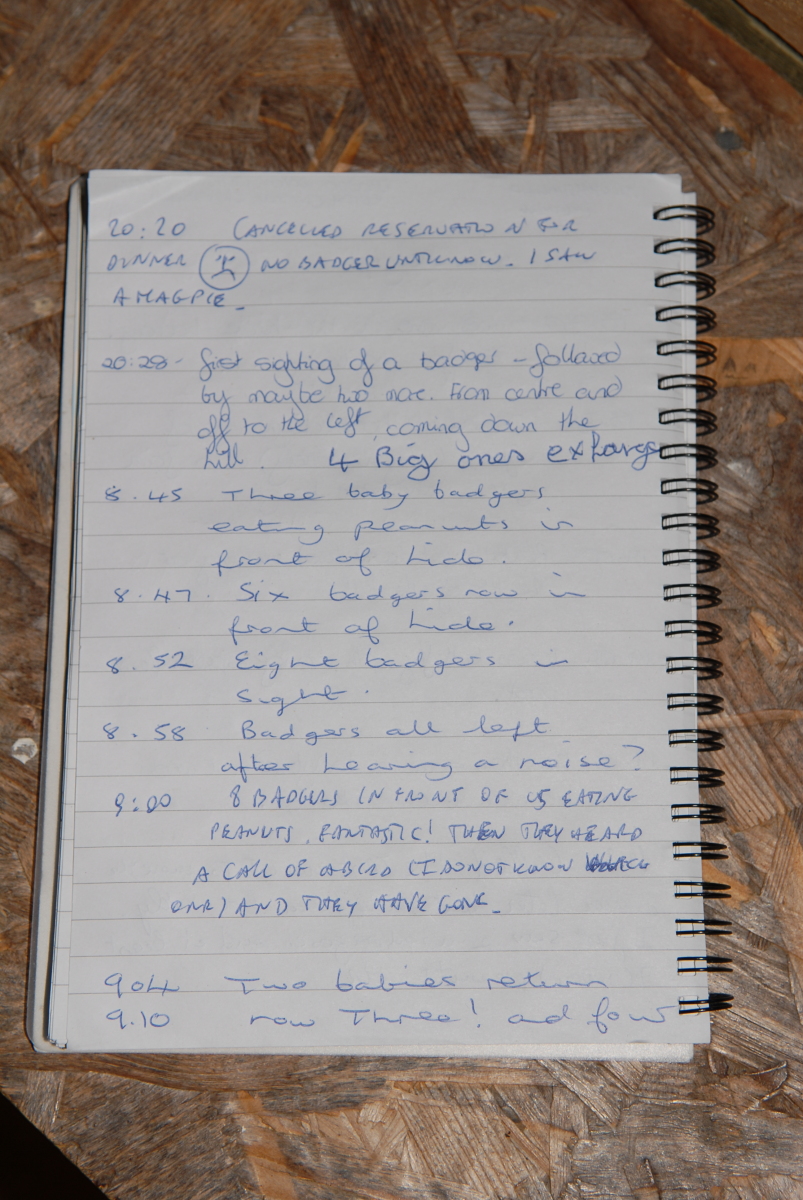 20:20 CANCELLED RESERVATION FOR
DINNER NO BADGER UNTIL NOW. I SAW
A MAGPIE.
20:28- first sighting of a badger - followed
by maybe two more. From centre and
off to the left, coming down the
hill. 4 Big ones
8.45 Three baby badgers
eating peanuts in
front of hide.
8.47. Six badgers now in
front of hide.
8.52 Eight badgers in
sight.
8.58 Badgers all left
after hearing a noise?
9:00 8 BADGERS IN FRONT OF US EATING
PEANUTS. FANTASTIC! THEN THEY HEARD
A CALL OF A BIRD (I DO NOT KNOW WHICH
ONE) AND THEY HAVE GONE.
904 Two babies return
9.10 now Three! and four